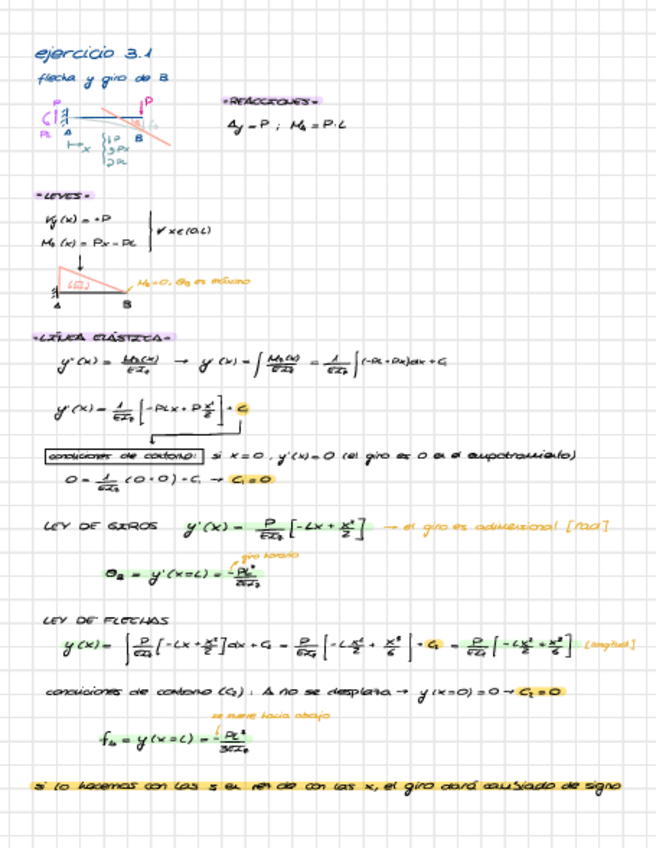 ejercicio 3.1
flecha y giro de B
P
P
PL
A
B
x
- REACCIONES -
Ay = P ; MA = P·L
- LEYES -
Vy(x) = +P
Mz(x) = Px - PL
∀ x ∈ (0,L)
MB = 0, θB es máximo
A
B
- LÍNEA ELÁSTICA -
y''(x) = Mz(x)/EIz → y'(x) = ∫ Mz(x)/EIz = 1/EIz ∫(-PL+Px)dx + C1
y'(x) = 1/EIz [-PLx + P x²/2] + C1
condiciones de contorno: si x=0, y'(x)=0 (el giro es 0 en el empotramiento)
0 = 1/EIz (0+0) + C1 → C1 = 0
LEY DE GIROS y'(x) = P/EIz [-Lx + x²/2] → el giro es adimensional [rad]
giro horario
θB = y'(x=L) = -PL²/2EIz
LEY DE FLECHAS
y(x) = ∫ P/EIz [-Lx + x²/2] dx + C2 = P/EIz [-L x²/2 + x³/6] + C2 = P/EIz [-L x²/2 + x³/6] [longitud]
condiciones de contorno (C2) : A no se desplaza → y(x=0) = 0 → C2 = 0
se mueve hacia abajo
fB = y(x=L) = -PL³/3EIz
si lo hacemos con las s en vez de con las x, el giro dará cambiado de signo